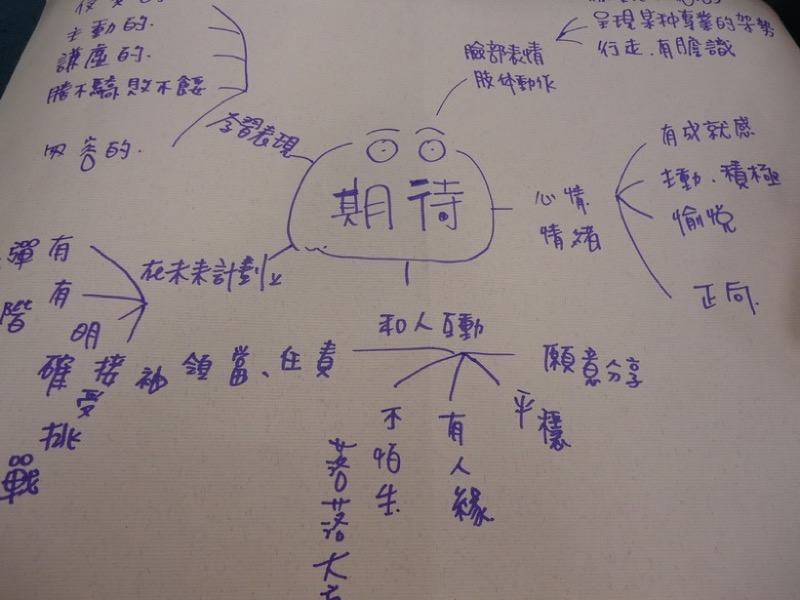 主動的.
謙虛的.
勝不驕敗不餒
學習表現
臉部表情
肢体動作
呈現某种專業的架勢
行走.有膽識
期待
心情.
情緒
有成就感
主動、積極
愉悅
正向.
在未來計劃上
有彈
有階
明確
接受挑戰
和人互動
責任、當領袖
落落大
不怕生
有人緣
平穩
願意分享